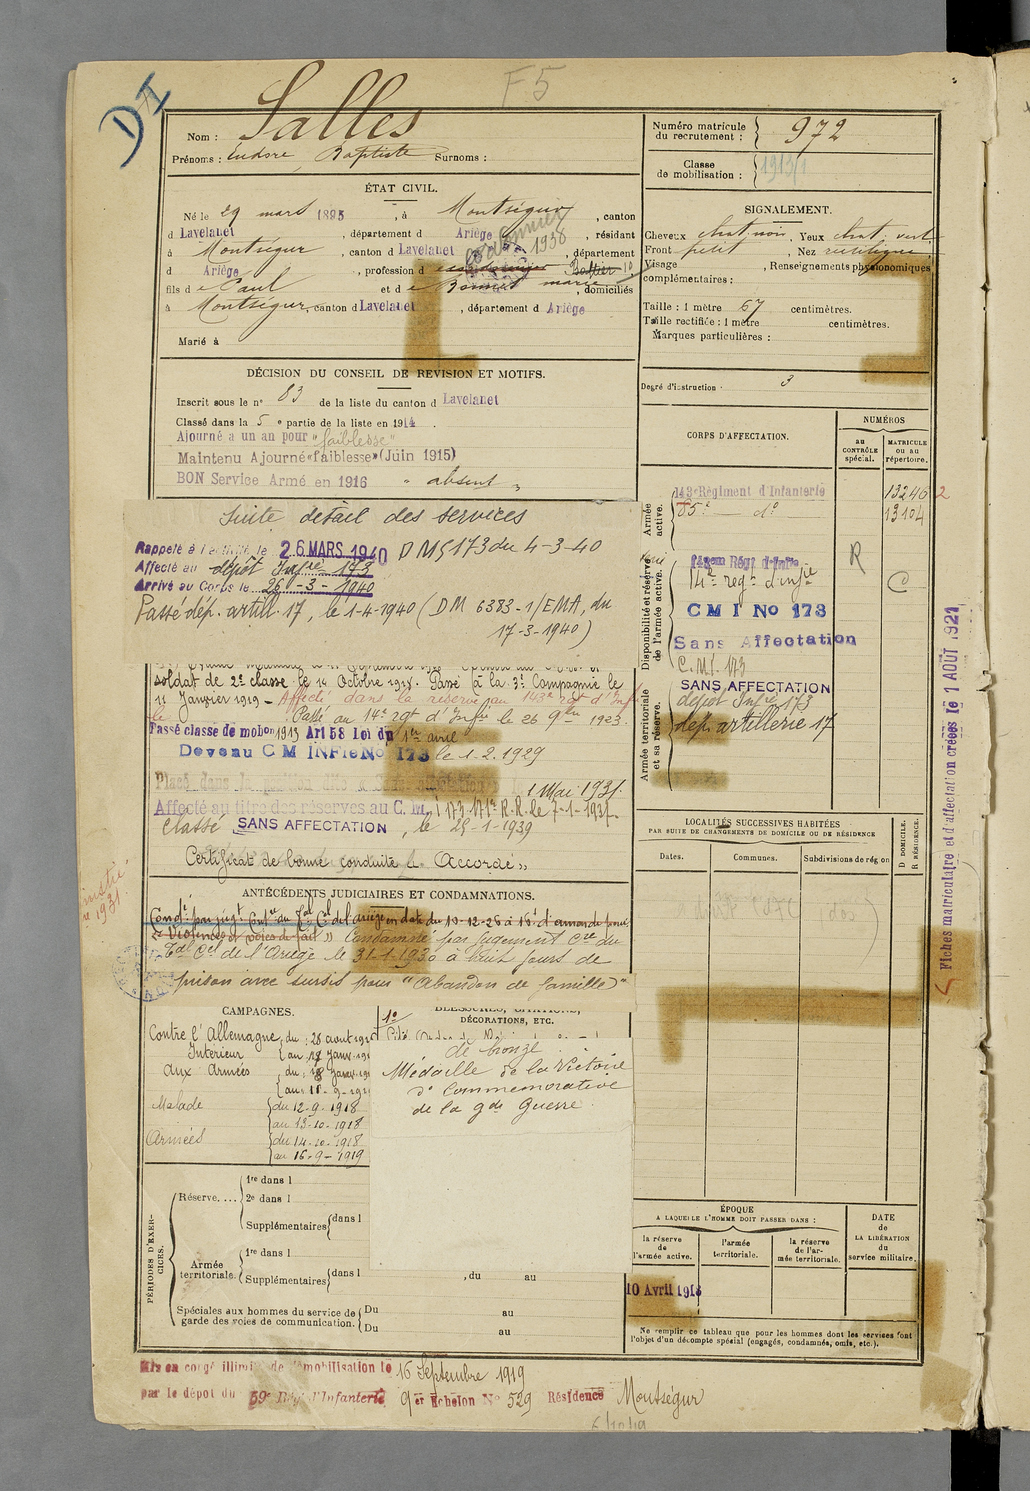 F5
DI
Nom : Salles
Prénoms : Eudore, Baptiste Surnoms :
Numéro matricule du recrutement : 972
Classe de mobilisation : 1913/1
ÉTAT CIVIL.
Né le 29 mars 1895, à Montségur, canton
d Lavelanet, département d Ariège, résidant
à Montségur, canton d Lavelanet, département
d Ariège, profession d
cordonnier 1938
fils de Paul et de Bonnet marie, domiciliés
à Montségur, canton d Lavelanet, département d Ariège
Marié à
SIGNALEMENT.
Cheveux chat. noir, Yeux chat. vert
Front petit, Nez rectiligne
Visage , Renseignements physionomiques
complémentaires :
Taille : 1 mètre 67 centimètres.
Taille rectifiée : 1 mètre centimètres.
Marques particulières :
Degré d'instruction : 3
DÉCISION DU CONSEIL DE REVISION ET MOTIFS.
Inscrit sous le n° 83 de la liste du canton d Lavelanet
Classé dans la 5e partie de la liste en 1914.
Ajourné a un an pour "faiblesse"
Maintenu Ajourné «faiblesse» (Juin 1915)
BON Service Armé en 1916 " absent "
Suite détail des services
Rappelé à l'activité le 26 MARS 1940 DM 5173 du 4-3-40
Affecté au dépôt Infrie 173
Arrivé au Corps le 26-3-1940
Passé dép. artill 17, le 1-4-1940 (DM 6383-1/EMA, du
17-3-1940)
soldat de 2e classe le 14 Octobre 1918. Passé à la 3e Compagnie le
11 Janvier 1919 - Affecté dans la réserve au 143e rgt d'Infie
le Passé au 14e rgt d'Infie le 26 9bre 1923.
Passé classe de mobon 1913 Art 58 loi du 1er avril
Devenu C M INFie No 173 le 1.2.1929
Placé dans la position dite « Sans affectation » 1 Mai 1931.
Affecté au titre des réserves au C. M. I 173
Classé SANS AFFECTATION, le 28-1-1939
Certificat de bonne conduite « Accordé »
CORPS D'AFFECTATION.
NUMÉROS
au CONTRÔLE spécial.
MATRICULE ou au répertoire.
Armée active.
143e Régiment d'Infanterie 13246 2
85e d° 13104
Disponibilité et réserve de l'armée active.
14e reg. d'Infie
R
C
C M I No 173
Sans Affectation
C.M.I. 173
Armée territoriale et sa réserve.
SANS AFFECTATION
dépôt Infie 173
dép. artillerie 17
Fiches matriculaire et d'affectation créées le 1 AOÛT 1921
ANTÉCÉDENTS JUDICIAIRES ET CONDAMNATIONS.
Condé par jugt Contre du Tal Cel de l'Ariège en date du 13-12-28 à 16f d'amende pour
"Violences et voies de fait" Condamné par jugement Cre du
Tal Cel de l'Ariège le 31-1-1930 à huit jours de
prison avec sursis pour "Abandon de famille"
LOCALITÉS SUCCESSIVES HABITÉES
PAR SUITE DE CHANGEMENTS DE DOMICILE OU DE RÉSIDENCE
Dates. Communes. Subdivisions de région D DOMICILE. R RÉSIDENCE.
CAMPAGNES.
Contre l'Allemagne du : 28 aout
Intérieur au 17 Janv.
Aux Armées du : 18 Janv.
Malade du 12-9-1918
au 13-10-1918
Armées du 14-10-1918
au 16-9-1919
BLESSURES, CITATIONS, DÉCORATIONS, ETC.
1°
de bronze
Médaille de la Victoire
d° Commémorative
de la gde Guerre
PÉRIODES D'EXERCICES.
Réserve.... 1re dans l
2e dans l
Supplémentaires dans l
Armée territoriale. 1re dans l
Supplémentaires dans l , du au
Spéciales aux hommes du service de garde des voies de communication. Du au
Du au
ÉPOQUE
A LAQUELLE L'HOMME DOIT PASSER DANS :
la réserve de l'armée active.
l'armée territoriale.
la réserve de l'armée territoriale.
DATE de LA LIBÉRATION du service militaire.
10 Avril 1918
Ne remplir ce tableau que pour les hommes dont les services font
l'objet d'un décompte spécial (engagés, condamnés, omis, etc.).
Mis en congé illimité de démobilisation le 16 Septembre 1919
par le dépôt du 59e Régt d'Infanterie 9er Echelon No 529 Résidence Montségur
6/10/19